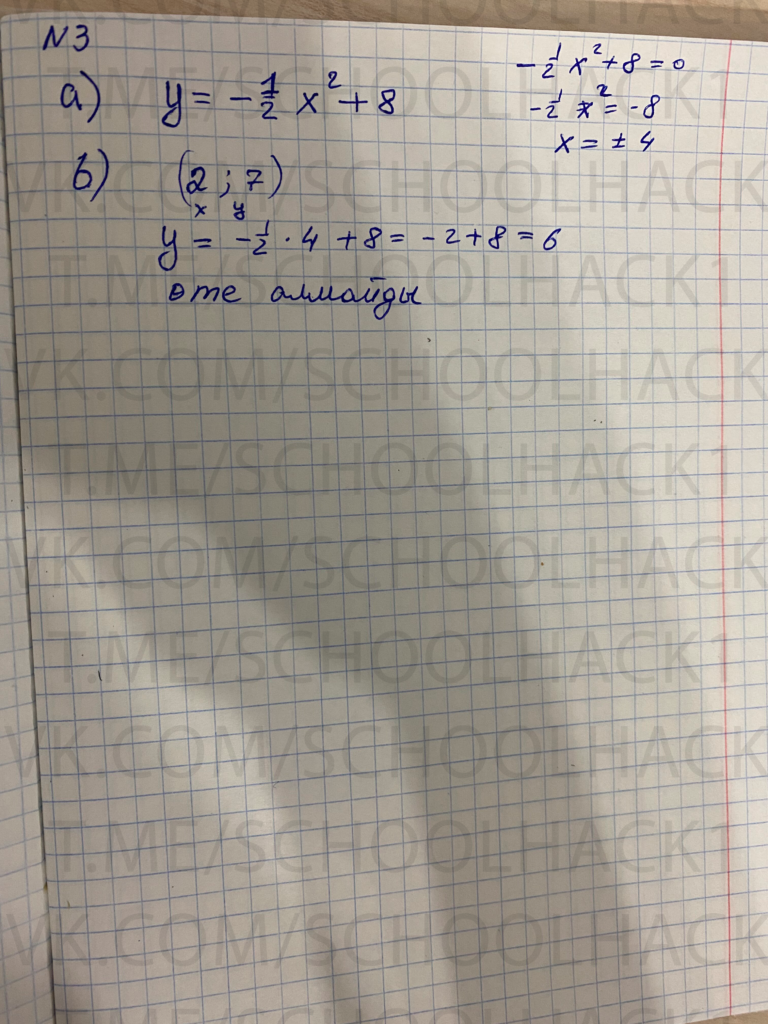 N3
а) y = -1/2 x² + 8
-1/2 x² + 8 = 0
-1/2 x² = -8
x = ± 4
b) (2 ; 7)
x y
y = -1/2 · 4 + 8 = -2 + 8 = 6
өте алмайды
VK.COM/SCHOOLHACK1
T.ME/SCHOOLHACK1
VK.COM/SCHOOLHACK
T.ME/SCHOOLHACK1
VK.COM/SCHOOLHACK
T.ME/SCHOOLHACK1
VK.COM/SCHOOLHACK
T.ME/SCHOOLHACK1
VK.COM/SCHOOLHACK